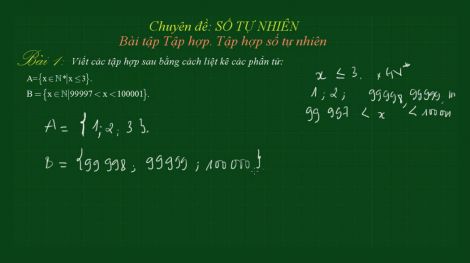 Chuyên đề: SỐ TỰ NHIÊN
Bài tập Tập hợp. Tập hợp số tự nhiên
Bài 1: Viết các tập hợp sau bằng cách liệt kê các phần tử:
A={x∈N*|x≤3}.
B = {x∈N|99997 < x <100001}.
x ≤ 3. x∈N*
1; 2; 99998, 99999,
99 997 < x < 10000
A = {1; 2; 3}.
B = {99 998; 99999; 100000}